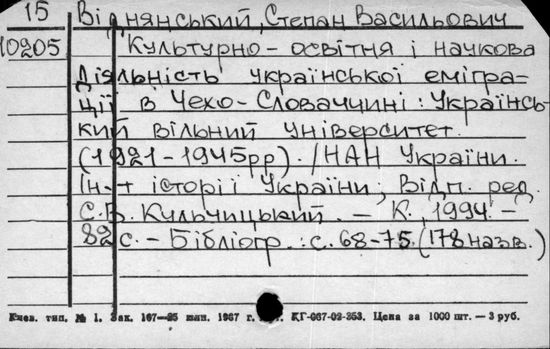 15 Віднянський, Степан Васильович
10205 Культурно-освітня і наукова
діяльність української емігра-
ції в Чехо-Словаччині: Українсь-
кий вільний університет.
(1921-1945рр). /НАН України.
Ін-т історії України; Відп. ред.
С.В. Кульчицький. - К., 1994. -
82 с. - Бібліогр.: с. 68-75. (178 назв.)
Киев. тип. № 1. Зак. 167—25 млн. 1967 КГ-067-02-253. Цена за 1000 шт. — 3 руб.